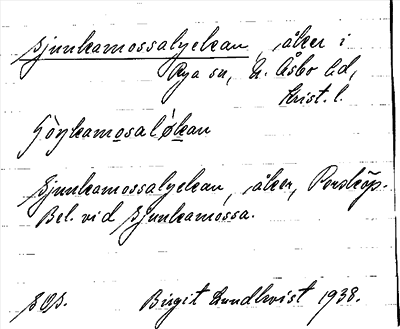 Sjunkamossalyckan, åker i
Rya sn, N. Åsbo hd,
Krist. l.
Sjunkamossalyckan, åker, Perstorp.
Bel. vid Sjunkamossa.
Birgit Lundkvist 1938.